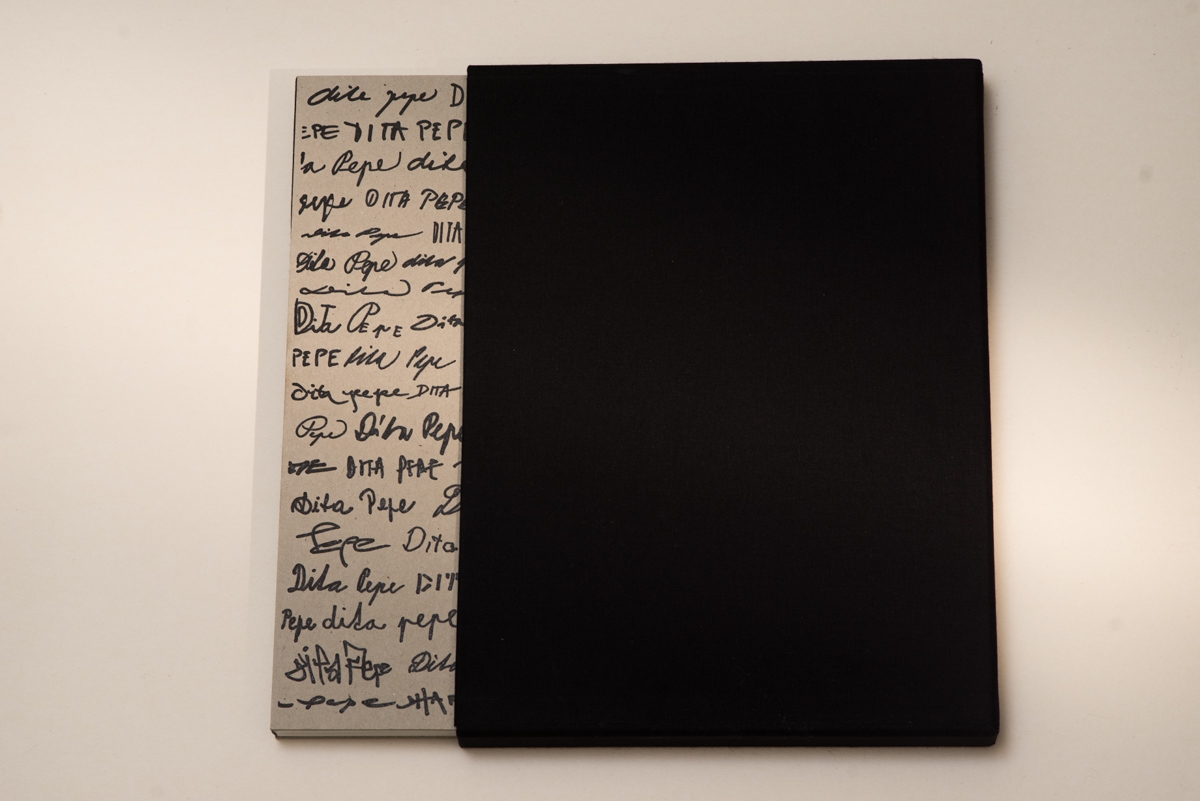 dita pepe D
EPE DITA PEPE
a Pepe dita
pepe DITA PEPE
dita Pepe DITA
Dita Pepe dita
Dita
Dita PEPE Dita
PEPE dita Pepe
Dita pepe DITA
Pepe Dita Pepe
DITA PEPE
Dita Pepe D
Pepe Dita
Dita Pepe DIT
Pepe dita pepe
Dita Pepe Dita
pepe DITA